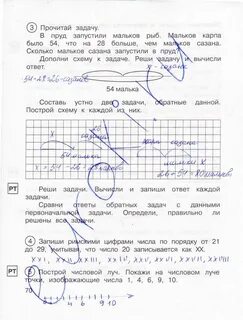 3 Прочитай задачу.
В пруд запустили мальков рыб. Мальков карпа
было 54, что на 28 больше, чем мальков сазана.
Сколько мальков сазана запустили в пруд?
Дополни схему к задаче. Реши задачу и вычисли
ответ.
x - сазанов
54-28=26-сазанов
54 малька
Составь устно две задачи, обратные данной.
Построй схему к каждой из них.
54 малька
x
x = 54 - 26 = 28
26+54=80 мальков
РТ Реши задачи. Вычисли и запиши ответ каждой
задачи.
Сравни ответы обратных задач с данными
первоначальной задачи. Определи, правильно ли
решены все задачи.
4 Запиши римскими цифрами числа по порядку от 21
до 29, учитывая, что число 20 записывается как XX.
XXI, XXII, XXIII, XXIV, XXV, XXVI, XXVII, XXVIII
РТ 5 Построй числовой луч. Покажи на числовом луче
точки, изображающие числа 1, 4, 6, 9, 10.
70
1 4 6 9 10